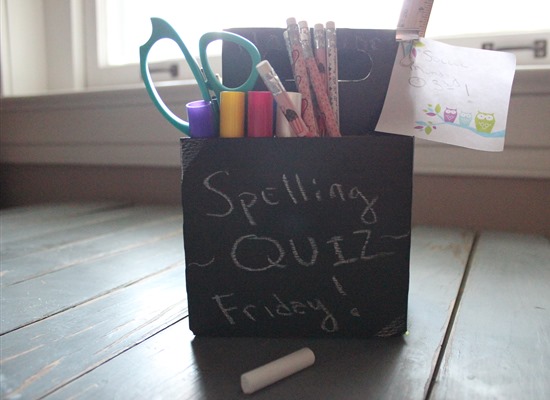 Spelling
~QUIZ~
Friday!